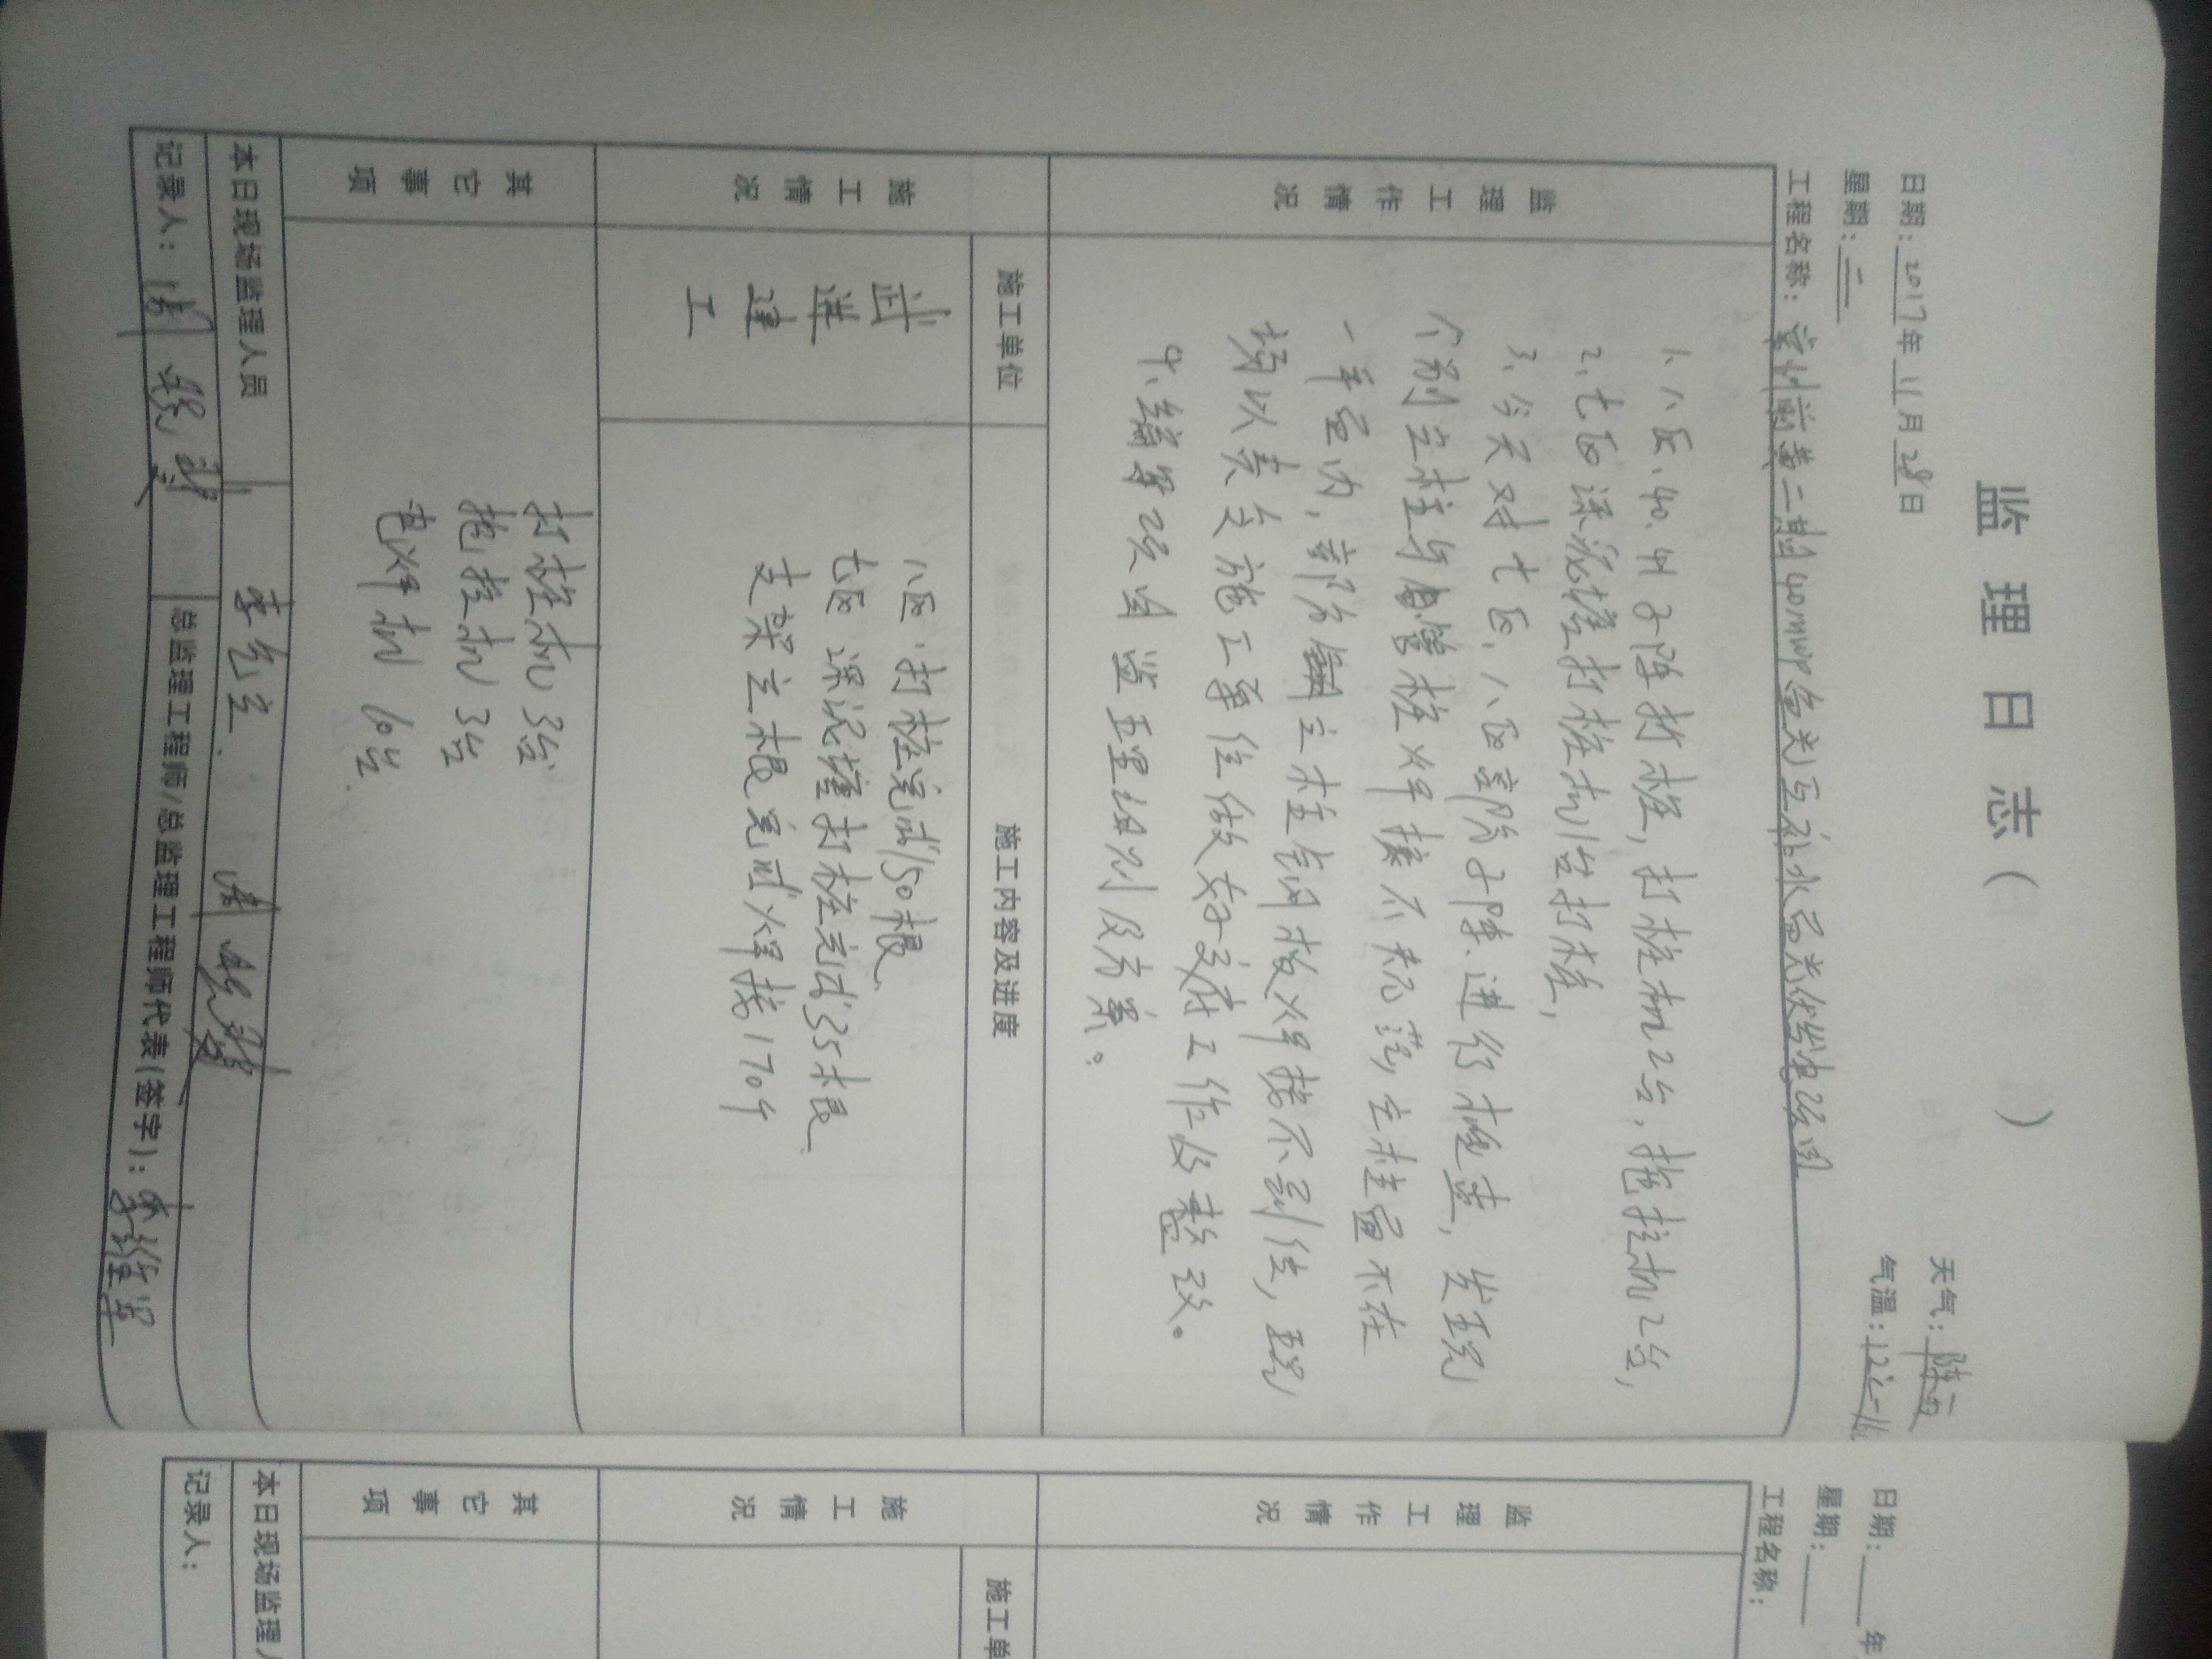 监理日志（ ）
日期：2017年11月28日 天气：阵雨
星期：二 气温：12℃-16
工程名称：常州前黄二期40MWP渔光互补水面光伏发电项目
监理工作情况
1、八区、40、41子阵打桩，打桩机2台，拖拉机2台，
2、七区深泥塘打桩机1台打桩，
3、今天对七区、八区部份子阵进行检查，发现
个别立柱与管桩焊接不饱满，立柱垂不在
一平面内，部份立柱钢板焊接不到位，现
均以责交施工单位做好交底工作及整改。
4、编写项目监理细则及方案。
施工情况
施工单位 施工内容及进度
武进建工
八区：打桩完成150根
七区 深泥塘打桩完成35根
支架立根完成焊接170个
其它事项
打桩机 3台
拖拉机 3台
电焊机 10台
本日现场监理人员
记录人：
总监理工程师/总监理工程师代表（签字）：
日期： 年
星期：
工程名称：
监理工作情况
施工情况
施工单
其它事项
本日现场监理人
记录人：